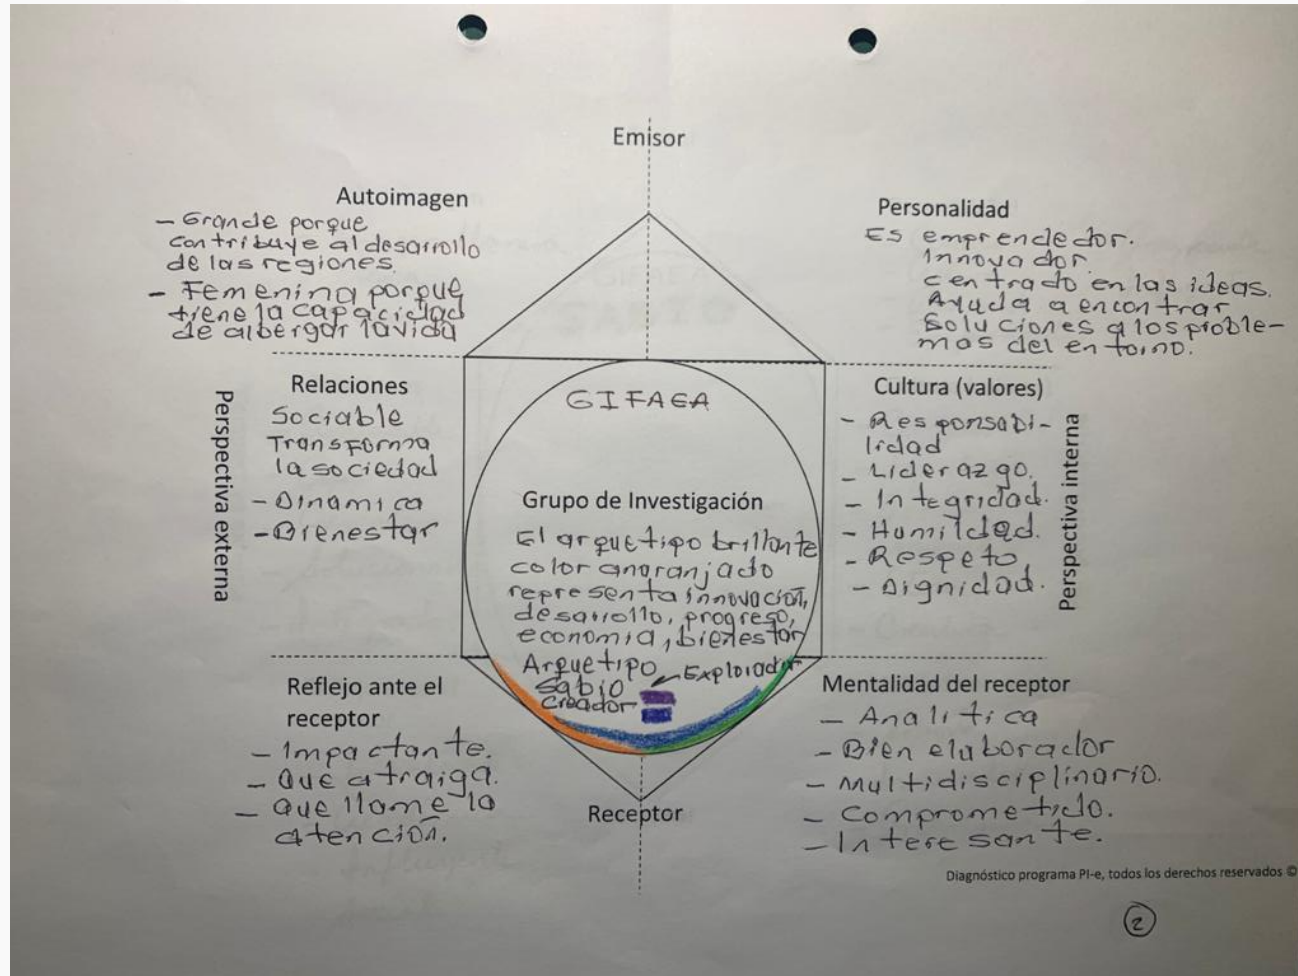 Emisor
Autoimagen
- Grande porque
contribuye al desarrollo
de las regiones.
- Femenina porque
tiene la capacidad
de albergar la vida
Personalidad
Es emprendedor.
Innovador
centrado en las ideas.
Ayuda a encontrar
Soluciones a los proble-
mas del entorno.
Perspectiva externa
Relaciones
Sociable
Transforma
la sociedad
- Dinamica
- Bienestar
GIFAEA
Grupo de Investigación
El arquetipo brillante
color anaranjado
representa innovación,
desarrollo, progreso,
economia, bienestar
Arquetipo
Explorador
Sabio
Creador
Cultura (valores)
- Responsabi-
lidad
- Liderazgo.
- Integridad.
- Humildad.
- Respeto
- Dignidad.
Perspectiva interna
Reflejo ante el
receptor
- Impactante.
- Que atraiga.
- Que llame la
atención.
Receptor
Mentalidad del receptor
- Analitica
- Bien elaborador
- Multidisciplinario.
- Comprometido.
- Interesante.
Diagnóstico programa PI-e, todos los derechos reservados ©
2